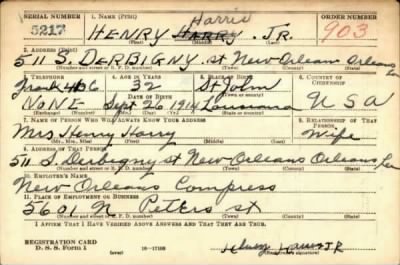 SERIAL NUMBER 1. NAME (Print) ORDER NUMBER
5217 HENRY HARRY Harris JR. 903
(First) (Middle) (Last)
2. ADDRESS (Print)
511 S. DERBIGNY st New Orleans Orleans La
(Number and street or R. F. D. number) (Town) (County) (State)
3. TELEPHONE 4. AGE IN YEARS 5. PLACE OF BIRTH 6. COUNTRY OF CITIZENSHIP
32 St John
DATE OF BIRTH
NONE Sept 26 1914 Louisiana U S A
(Exchange) (Number) (Mo.) (Day) (Yr.) (State or country)
7. NAME OF PERSON WHO WILL ALWAYS KNOW YOUR ADDRESS 8. RELATIONSHIP OF THAT PERSON
Mrs Henry Harry Wife
(Mr., Mrs., Miss) (First) (Middle) (Last)
9. ADDRESS OF THAT PERSON
511 S. Derbigny st New Orleans Orleans La
(Number and street or R. F. D. number) (Town) (County) (State)
10. EMPLOYER'S NAME
New Orleans Compress
11. PLACE OF EMPLOYMENT OR BUSINESS
5601 N Peters st
(Number and street or R. F. D. number) (Town) (County) (State)
I AFFIRM THAT I HAVE VERIFIED ABOVE ANSWERS AND THAT THEY ARE TRUE.
REGISTRATION CARD
D. S. S. Form 1 (over) 16-17105 Henry Harris JR
(Registrant's signature)